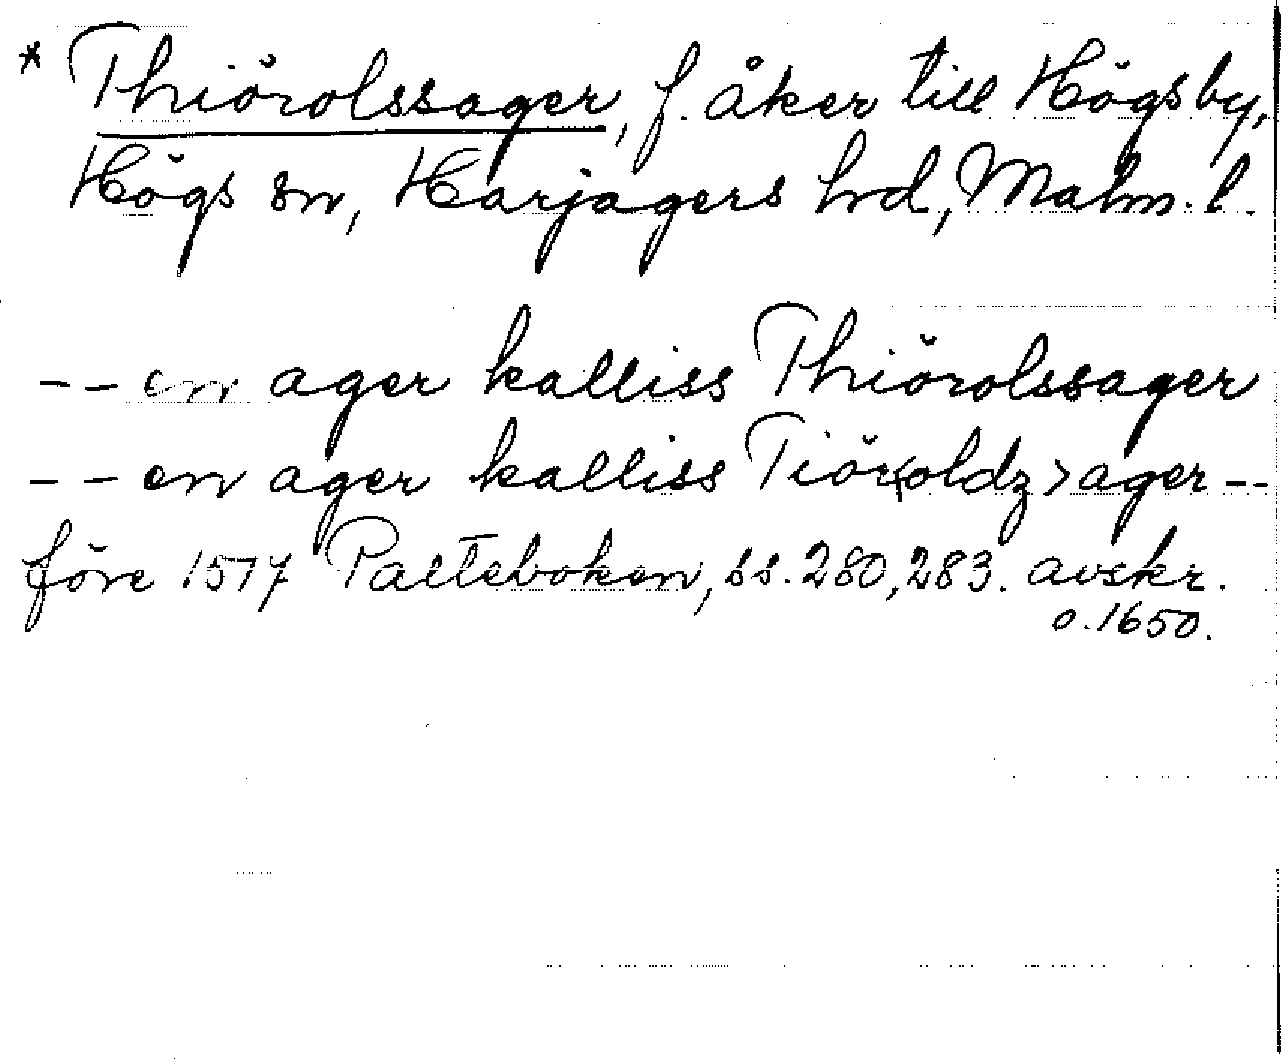 * Thiörolssager, f. åker till Högsby,
Högs sn, Harjagers hd, Malm. l.
-- en ager kalliss Thiörolssager
-- en ager kalliss Tiör<oldz>ager --
före 1517 Palteboken, ss. 280, 283. avskr.
o. 1650.